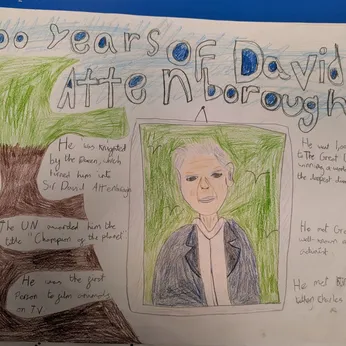 00 years of David
Attenborough
He was knighted
by the Queen, which
turned him into
Sir David Attenborough
The UN awarded him the
title "Champion of the planet"
He was the first
Person to film animals
on TV.
He
to The Great
winning a
the deepest
He met
well known
He met
king Charles